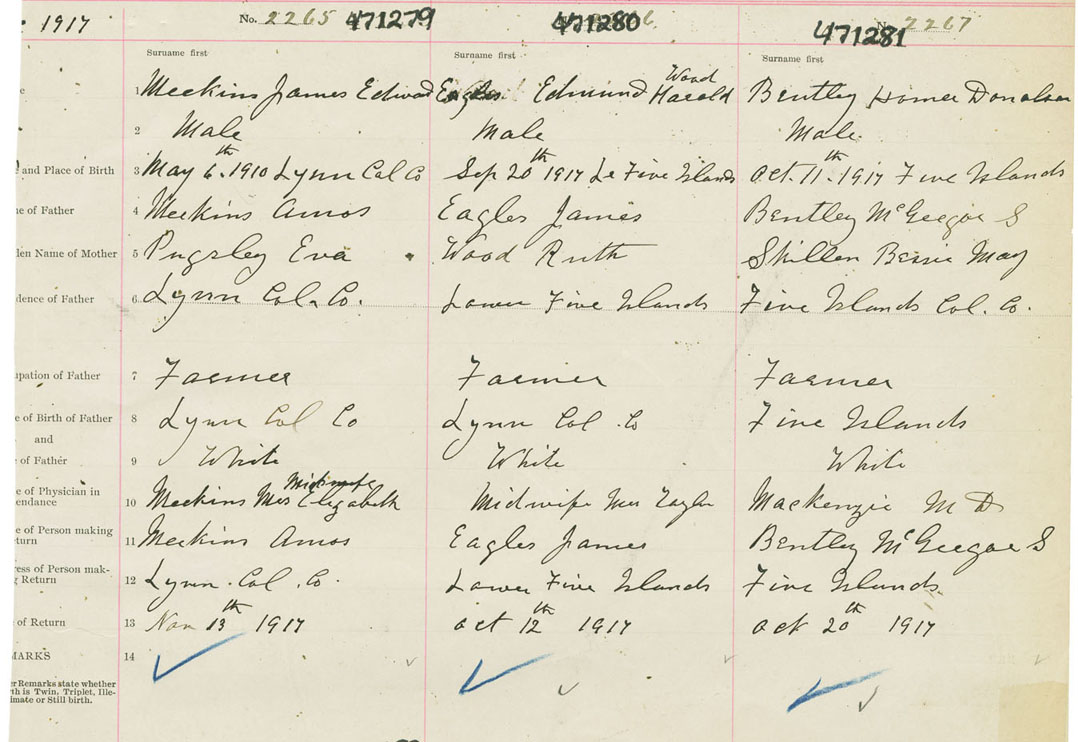 1917 No. 2265 471279 471280 No. 2267 471281
Surname first Surname first Surname first
1 Meekins James Edward Eagles Edmund Wood Harold Bentley Homer Donalson
2 Male Male Male
and Place of Birth 3 May 6th 1910 Lynn Col Co Sep 20th 1917 Lr Five Islands Oct. 11th 1917 Five Islands
e of Father 4 Meekins Amos Eagles James Bentley McGregor S
den Name of Mother 5 Pugsley Eva Wood Ruth Skillen Bessie May
dence of Father 6 Lynn Col. Co. Lower Five Islands Five Islands Col. Co.
upation of Father 7 Farmer Farmer Farmer
e of Birth of Father 8 Lynn Col Co Lynn Col. Co Five Islands
and
of Father 9 White White White
e of Physician in
endance 10 Meekins Mrs Elizabeth Midwife Midwife Mrs Taylor Mackenzie M D
e of Person making
turn 11 Meekins Amos Eagles James Bentley McGregor S
ress of Person mak-
g Return 12 Lynn. Col. Co. Lower Five Islands Five Islands.
of Return 13 Nov 13th 1917 Oct 12th 1917 Oct 20th 1917
MARKS 14
er Remarks state whether
th is Twin, Triplet, Ille-
imate or Still-birth.